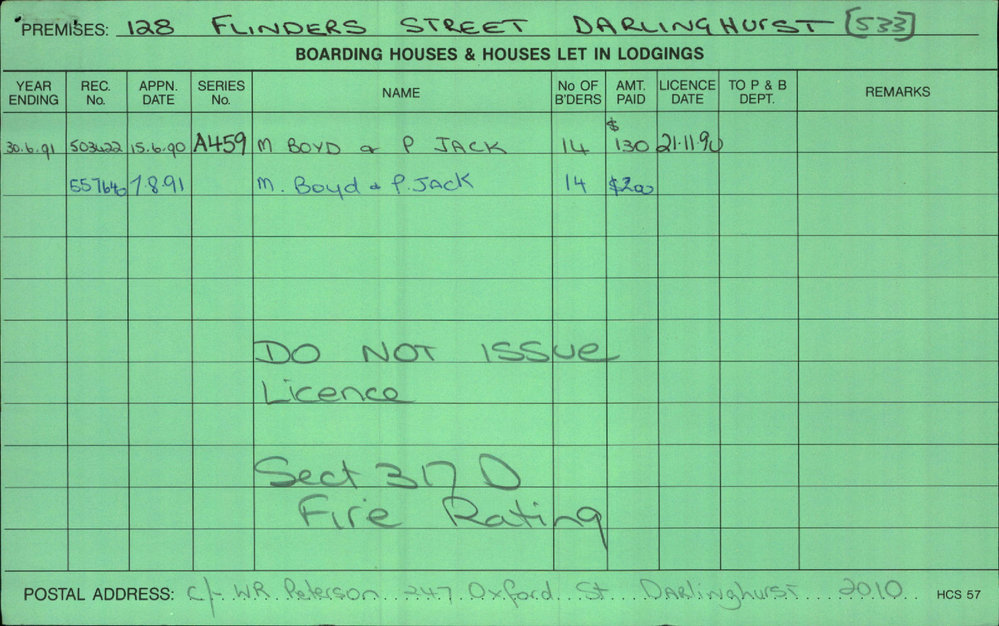 PREMISES: 128 FLINDERS STREET DARLINGHURST [533]
BOARDING HOUSES & HOUSES LET IN LODGINGS
YEAR ENDING REC. No. APPN. DATE SERIES No. NAME No OF B'DERS AMT. PAID LICENCE DATE TO P & B DEPT. REMARKS
30.6.91 503422 15.6.90 A459 M BOYD & P JACK 14 $130 21.11.90
557640 7.8.91 M. Boyd & P. JACK 14 $200
DO NOT ISSUE
Licence
Sect 317 D
Fire Rating
POSTAL ADDRESS: c/- WR Peterson 247 Oxford St Darlinghurst 2010 HCS 57